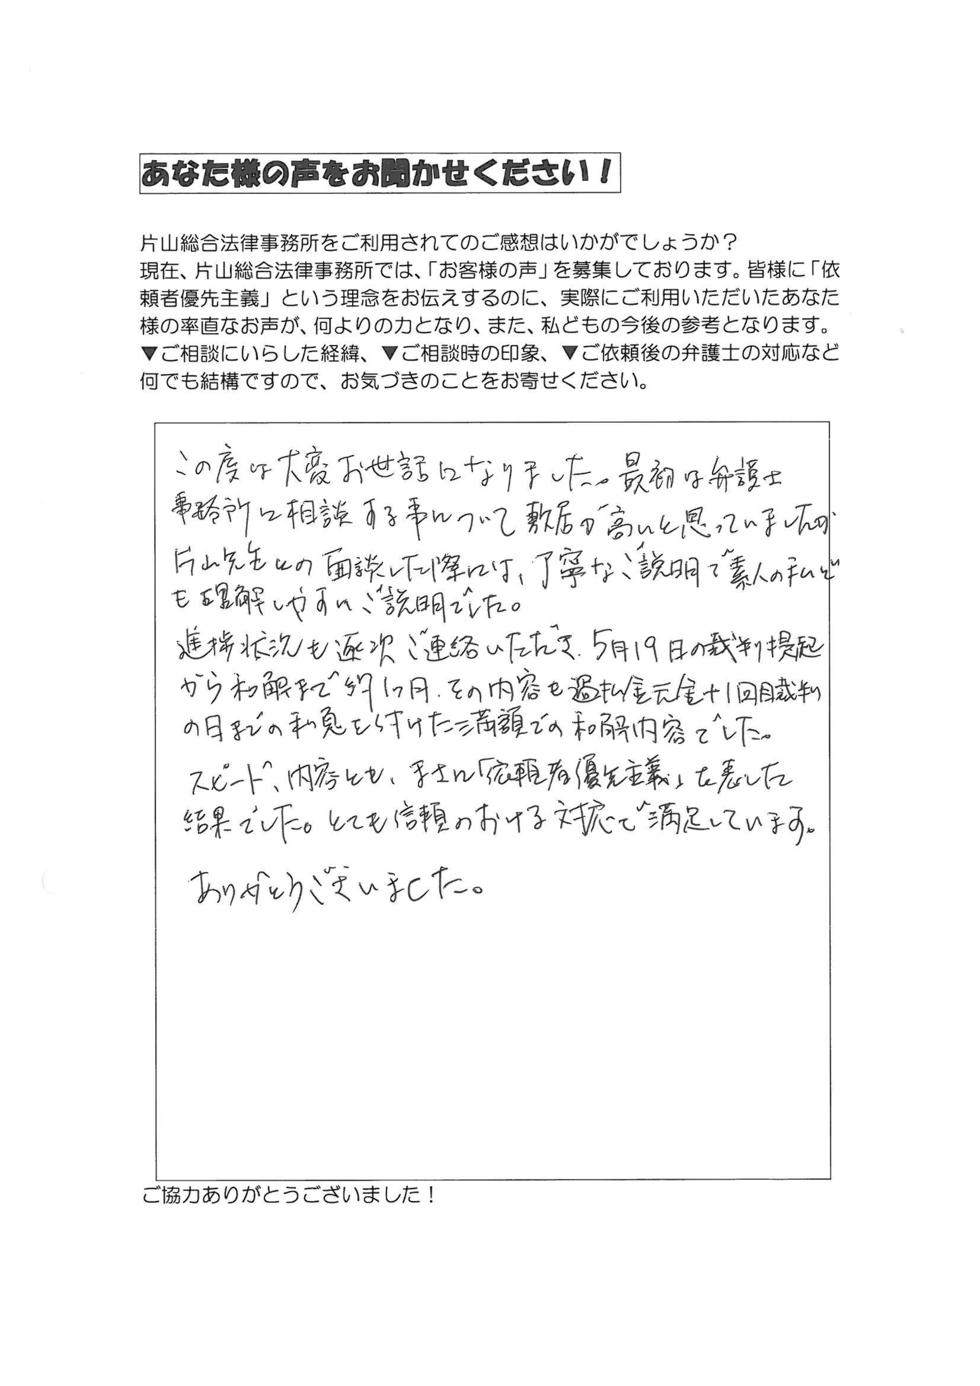 あなた様の声をお聞かせください！
片山総合法律事務所をご利用されてのご感想はいかがでしょうか？
現在、片山総合法律事務所では、「お客様の声」を募集しております。皆様に「依
頼者優先主義」という理念をお伝えするのに、実際にご利用いただいたあなた
様の率直なお声が、何よりの力となり、また、私どもの今後の参考となります。
▼ご相談にいらした経緯、▼ご相談時の印象、▼ご依頼後の弁護士の対応など
何でも結構ですので、お気づきのことをお寄せください。
この度は大変お世話になりました。最初は弁護士
事務所に相談する事について敷居が高いと思っていましたが
片山先生との面談した際には、丁寧なご説明で素人の私で
も理解しやすいご説明でした。
進捗状況も逐次ご連絡いただき、5月19日の裁判提起
から和解まで約1ヶ月、その内容も過払金元金＋1回目裁判
の日までの利息を付けた満額での和解内容でした。
スピード、内容とも、まさに「依頼者優先主義」を表した
結果でした。とても信頼のおける対応で満足しています。
ありがとうございました。
ご協力ありがとうございました！